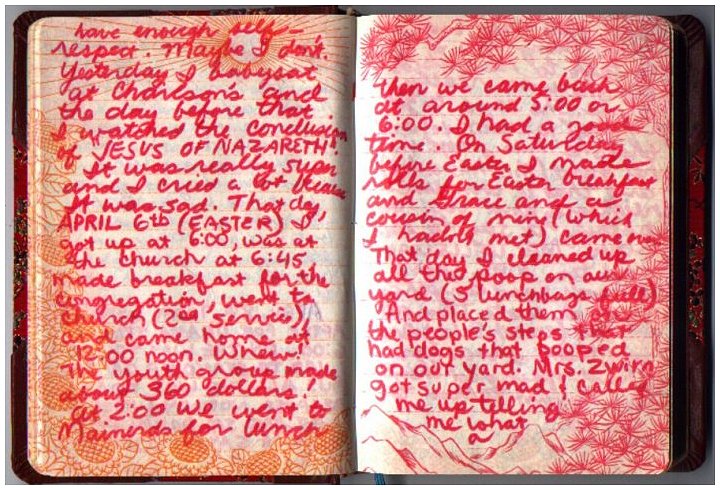 have enough self-
respect. Maybe I don't.
Yesterday I babysat
at Charlson's and
the day before that.
I watched the conclusion
of JESUS OF NAZARETH!
It was really super
and I cried a lot
It was sad. That day,
APRIL 6th (EASTER) I
got up at 6:00, was at
the church at 6:45
made breakfast for the
congregation, went to
church (2nd service)
and came home at
12:00 noon. Whew!
The youth group made
about 360 dollars!
At 2:00 we went to
for lunch
then we came back
at around 5:00 or
6:00. I had a
time. On Saturday
before Easter I made
rolls for Easter breakfast
and Grace and a
cousin of mine (which
I hadn't met) came over
That day I cleaned up
all the poop on our
yard (5 lunchbags full)
And placed them on
the people's steps that
had dogs that pooped
on our yard. Mrs. Zwirn
got super mad & called
me up telling
me what
a